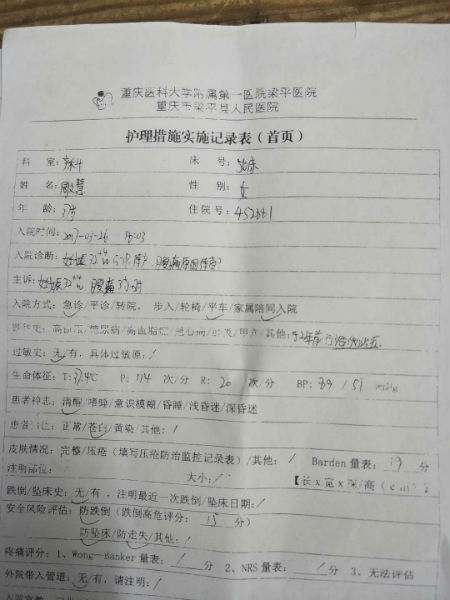 重庆医科大学附属第一医院梁平医院
重庆市梁平县人民医院
护理措施实施记录表（首页）
科 室： 床 号：
姓 名： 慧 性 别：女
年 龄： 住院号：452881
入院时间：2017-03-26
入院诊断：妊娠32+4 腹痛原因待查?
主诉：妊娠32+4 腹痛
入院方式：急诊/平诊/转院， 步入/轮椅/平车/家属陪同入院
患者史：高血压/糖尿病/高血脂症/冠心病/ /甲亢/其他：
过敏史：无/有，具体过敏原：/
生命体征：T:37.4℃ P: 114 次/分 R: 20 次/分 BP: 89 / 51 mmHg
患者神志：清醒/嗜睡/意识模糊/昏睡/浅昏迷/深昏迷
患者 ：正常/苍白/黄染/其他：/
皮肤情况：完整/压疮（填写压疮防治监控记录表）/其他：/ Barden 量表：19 分
注明部位： 大小：/ 【长x宽x深/高（cm）】
跌倒/坠床史：无/有，注明最近一次跌倒/坠床日期：/
安全风险评估：防跌倒（跌倒高危评分： 15 分）
防坠床/防走失/其他：/
疼痛评分：1、Wong-Banker 量表：/ 分 2、NRS 量表： / 分 3、无法评估
外院带入管道：无/有，请注明：/